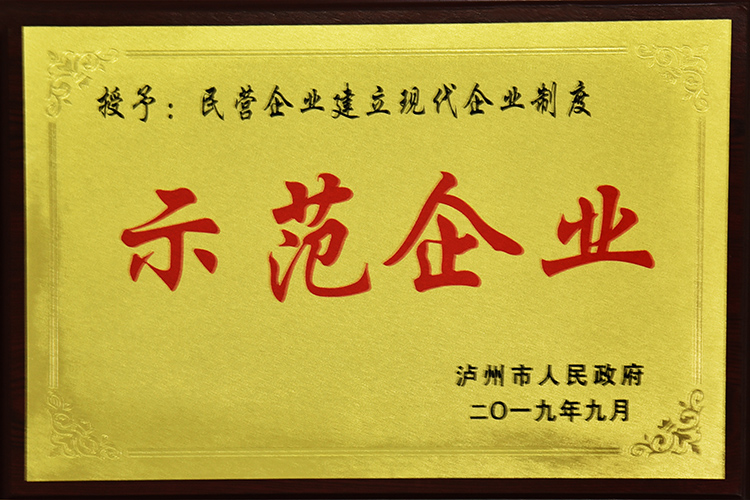 授予：民营企业建立现代企业制度
示范企业
泸州市人民政府
二〇一九年九月